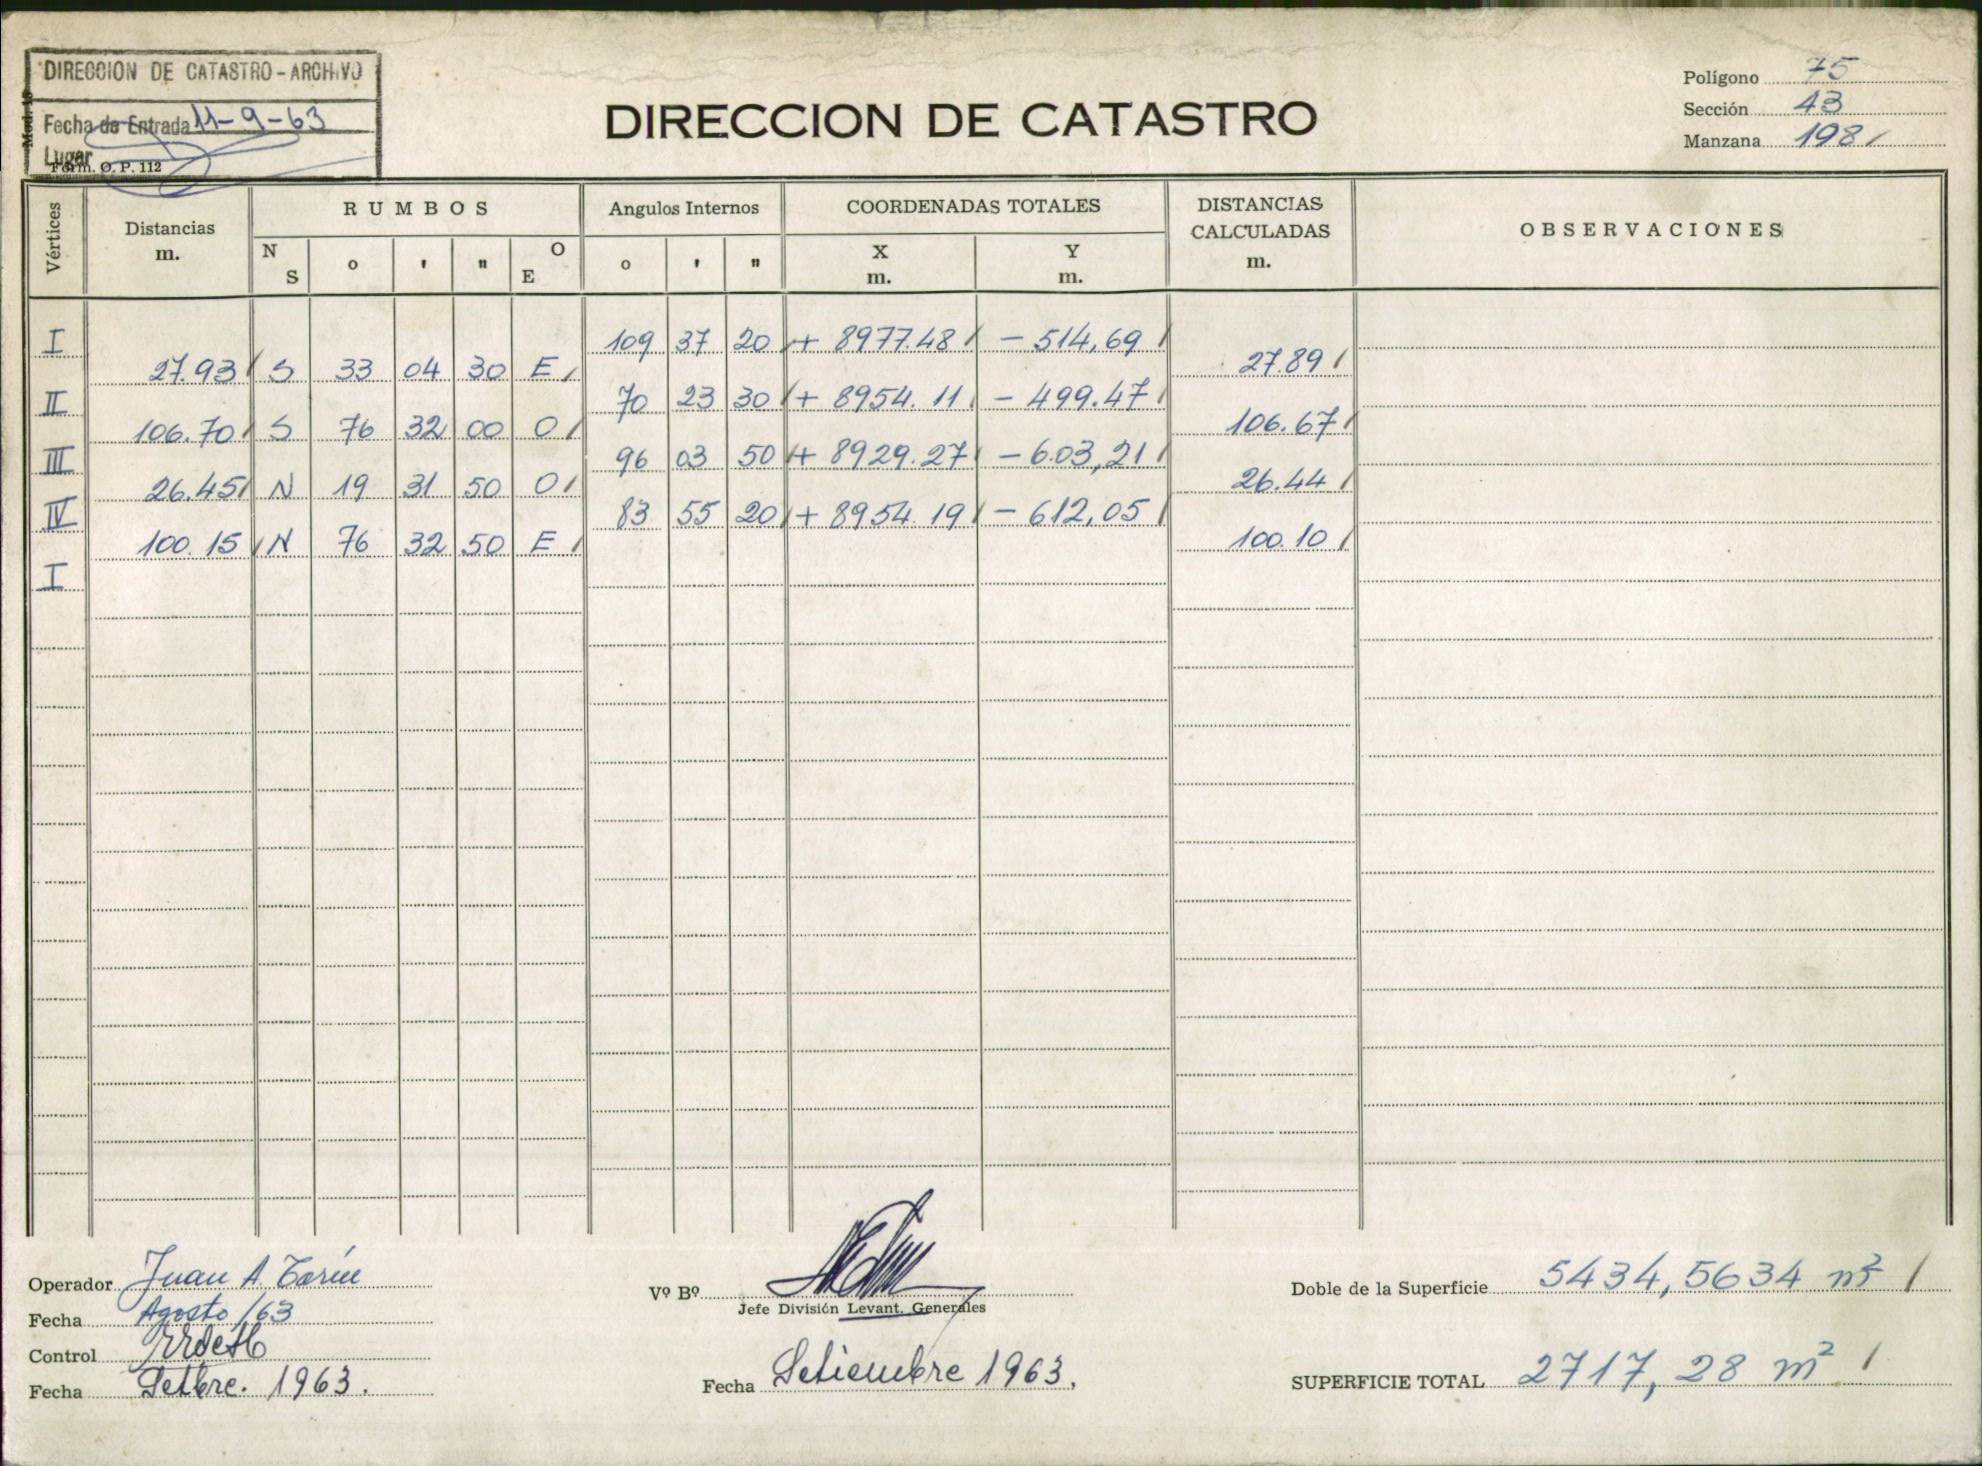 DIRECCION DE CATASTRO - ARCHIVO
Fecha de Entrada 11-9-63
Lugar
Form. O. P. 112
DIRECCION DE CATASTRO
Polígono 75
Sección 43
Manzana 198 /
Vértices
Distancias
m.
RUMBOS
N
S
o
'
"
O
E
Angulos Internos
o
'
"
COORDENADAS TOTALES
X
m.
Y
m.
DISTANCIAS
CALCULADAS
m.
OBSERVACIONES
I 109 37 20 / + 8977.48 / - 514,69 /
27.93 / S 33 04 30 E / 27.89 /
II 70 23 30 / + 8954.11 / - 499.47 /
106.70 / S 76 32 00 O / 106.67 /
III 96 03 50 / + 8929.27 / - 603,21 /
26.45 / N 19 31 50 O / 26.44 /
IV 83 55 20 / + 8954.19 / - 612,05 /
100.15 / N 76 32 50 E / 100.10 /
I
Operador Juan A.
Fecha Agosto/63
Control
Fecha Setbre. 1963.
Vº Bº
Jefe División Levant. Generales
Fecha Setiembre 1963.
Doble de la Superficie 5434,5634 m² /
SUPERFICIE TOTAL 2717,28 m² /